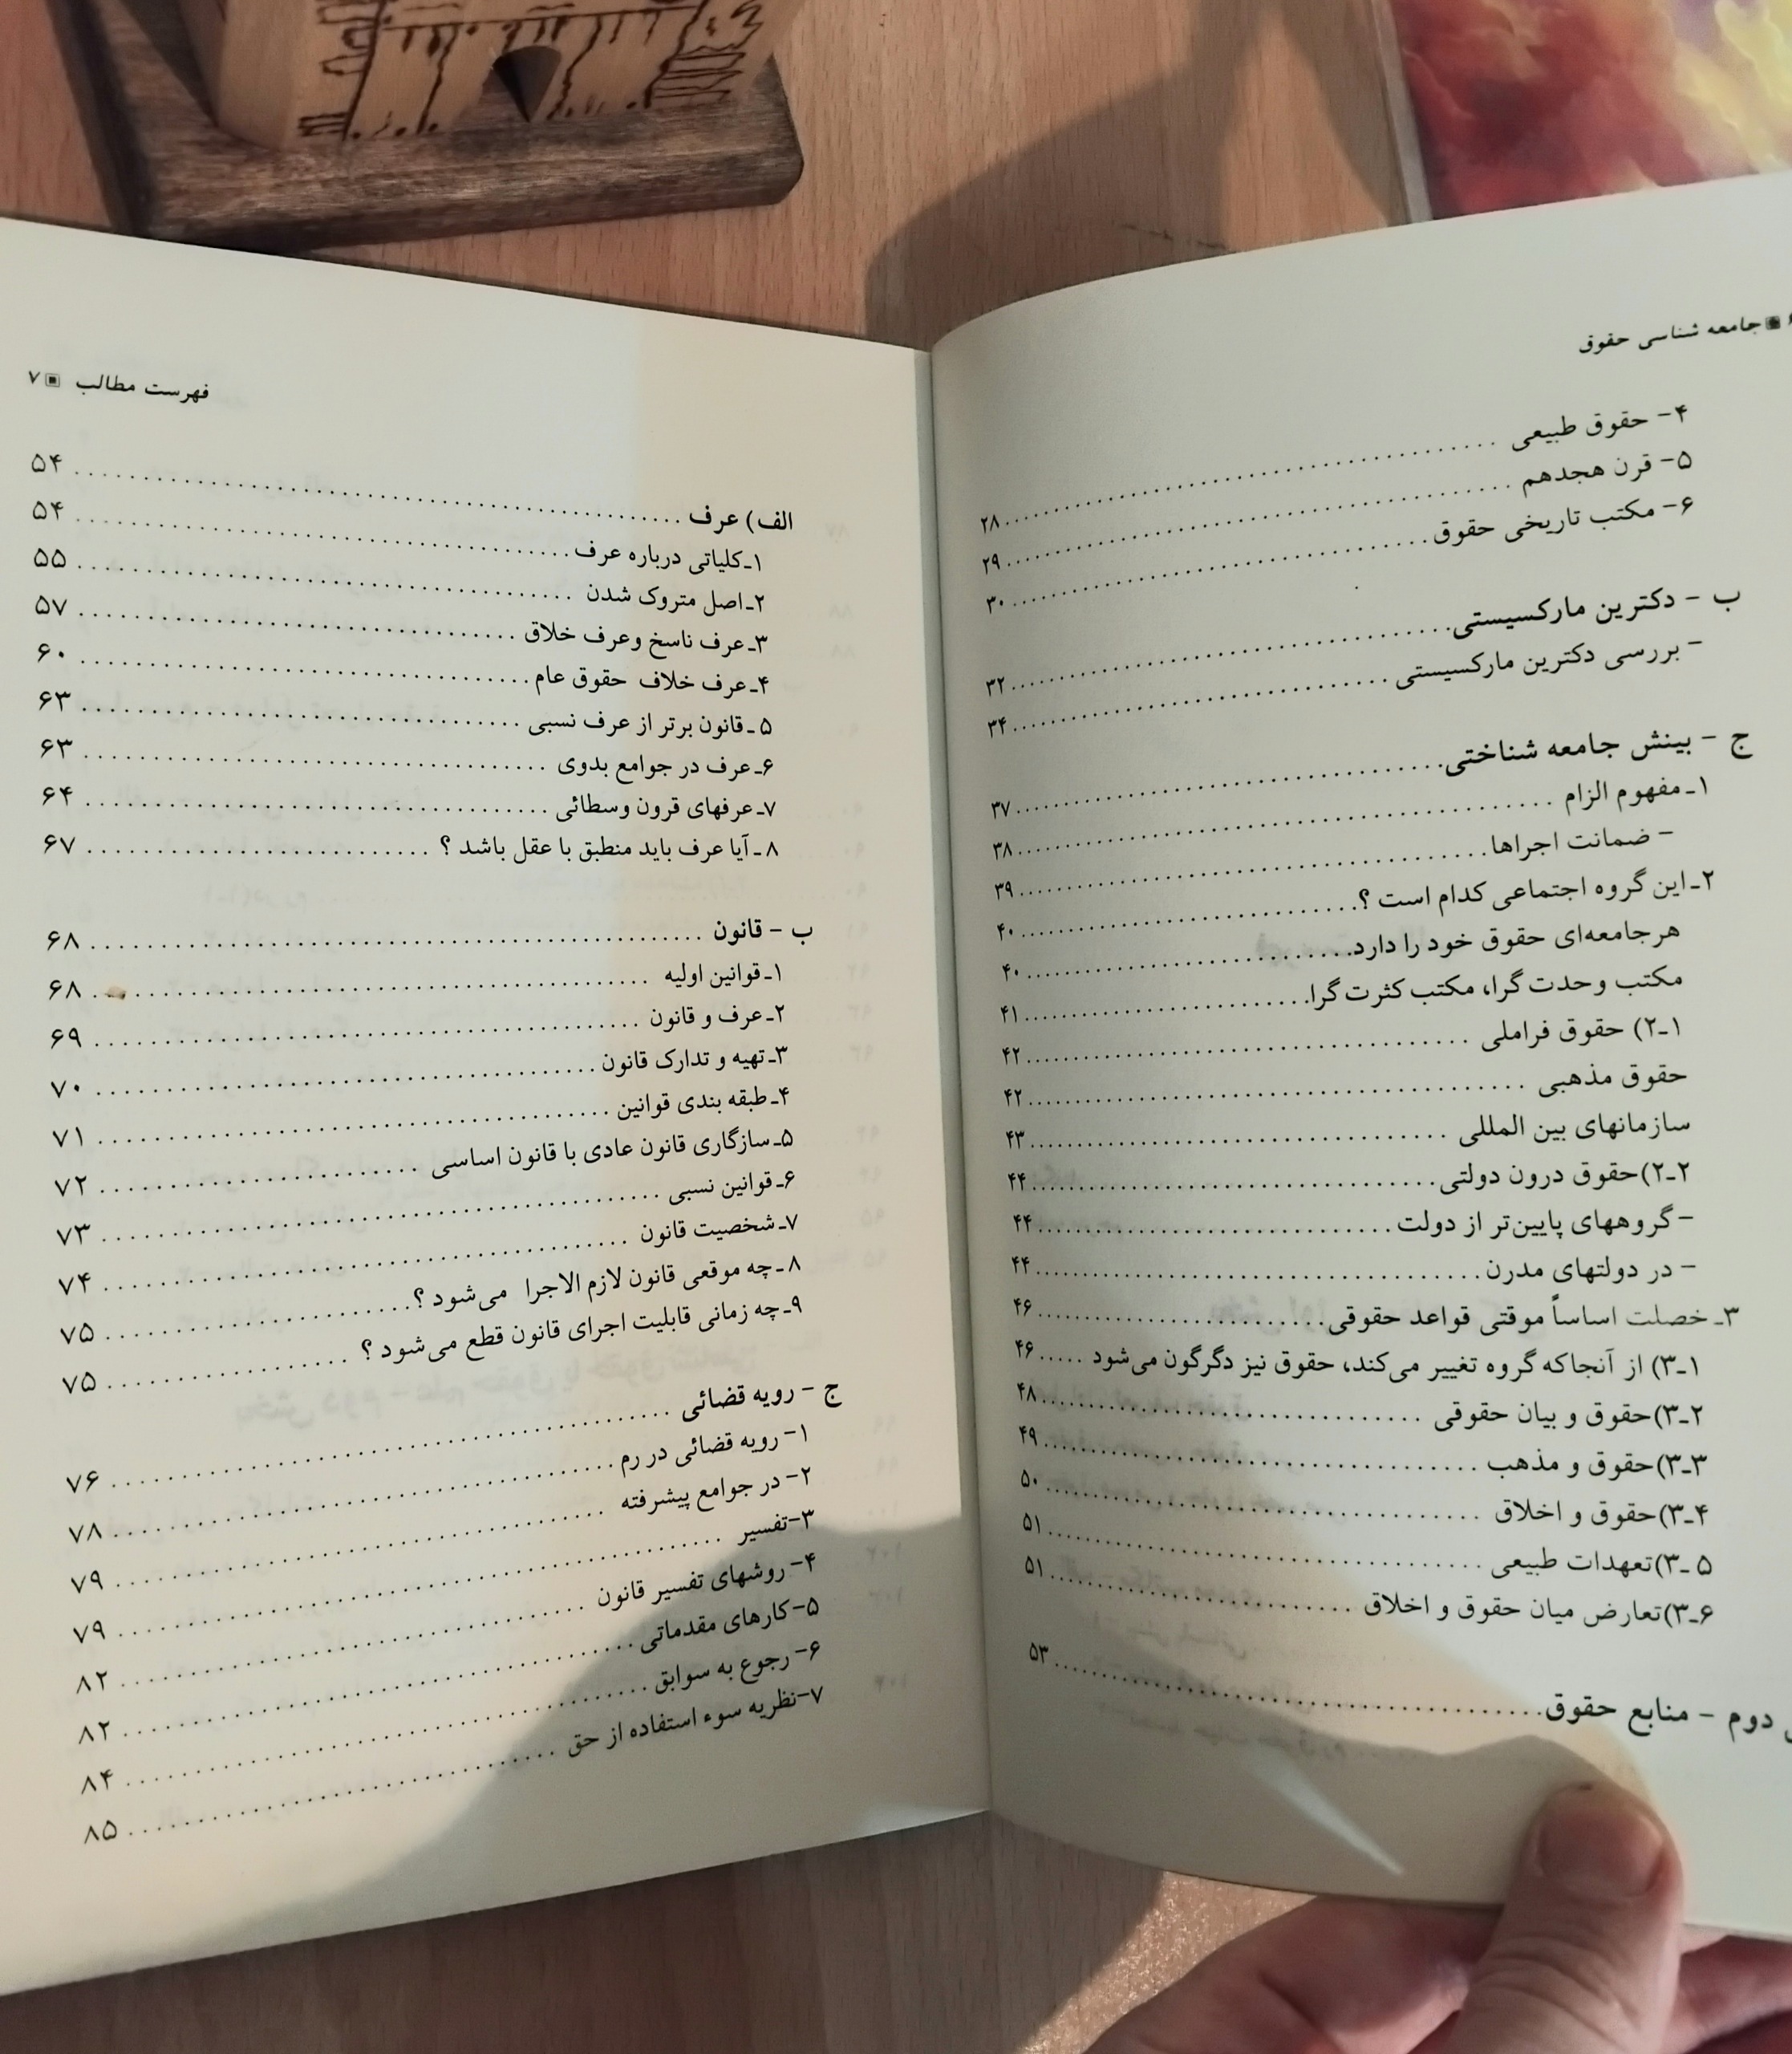 جامعه شناسی حقوق
۴- حقوق طبیعی ........ ۲۸
۵- قرن هجدهم ........ ۲۹
۶- مکتب تاریخی حقوق ........ ۳۰
ب - دکترین مارکسیستی ........ ۳۲
- بررسی دکترین مارکسیستی ........ ۳۴
ج - بینش جامعه شناختی ........ ۳۷
۱ـ مفهوم الزام ........ ۳۸
- ضمانت اجراها ........ ۳۹
۲ـ این گروه اجتماعی کدام است ؟ ........ ۴۰
هرجامعه‌ای حقوق خود را دارد ........ ۴۰
مکتب وحدت گرا، مکتب کثرت گرا ........ ۴۱
۱ـ۲) حقوق فراملی ........ ۴۲
حقوق مذهبی ........ ۴۲
سازمانهای بین المللی ........ ۴۳
۲ـ۲)حقوق درون دولتی ........ ۴۴
- گروههای پایین‌تر از دولت ........ ۴۴
- در دولتهای مدرن ........ ۴۴
۳ـ خصلت اساساً موقتی قواعد حقوقی ........ ۴۶
۱ـ۳) از آنجاکه گروه تغییر می‌کند، حقوق نیز دگرگون می‌شود ..... ۴۶
۲ـ۳)حقوق و بیان حقوقی ........ ۴۸
۳ـ۳)حقوق و مذهب ........ ۴۹
۴ـ۳)حقوق و اخلاق ........ ۵۰
۵ ـ۳)تعهدات طبیعی ........ ۵۱
۶ـ۳)تعارض میان حقوق و اخلاق ........ ۵۱
دوم - منابع حقوق ........ ۵۳
فهرست مطالب ▣ ۷
الف) عرف ........ ۵۴
۱ـکلیاتی درباره عرف ........ ۵۴
۲ـاصل متروک شدن ........ ۵۵
۳ـ عرف ناسخ وعرف خلاق ........ ۵۷
۴ـ عرف خلاف حقوق عام ........ ۶۰
۵ ـ قانون برتر از عرف نسبی ........ ۶۳
۶ـ عرف در جوامع بدوی ........ ۶۳
۷ـ عرفهای قرون وسطائی ........ ۶۴
۸ ـ آیا عرف باید منطبق با عقل باشد ؟ ........ ۶۷
ب - قانون ........ ۶۸
۱ـ قوانین اولیه ........ ۶۸
۲ـ عرف و قانون ........ ۶۹
۳ـ تهیه و تدارک قانون ........ ۷۰
۴ـ طبقه بندی قوانین ........ ۷۱
۵ـ سازگاری قانون عادی با قانون اساسی ........ ۷۲
۶ـ قوانین نسبی ........ ۷۳
۷ـ شخصیت قانون ........ ۷۴
۸ ـ چه موقعی قانون لازم الاجرا می‌شود ؟ ........ ۷۵
۹ـ چه زمانی قابلیت اجرای قانون قطع می‌شود ؟ ........ ۷۵
ج - رویه قضائی ........ ۷۶
۱- رویه قضائی در رم ........ ۷۸
۲- در جوامع پیشرفته ........ ۷۹
۳-تفسیر ........ ۷۹
۴- روشهای تفسیر قانون ........ ۸۲
۵-کارهای مقدماتی ........ ۸۲
۶- رجوع به سوابق ........ ۸۴
۷-نظریه سوء استفاده از حق ........ ۸۵